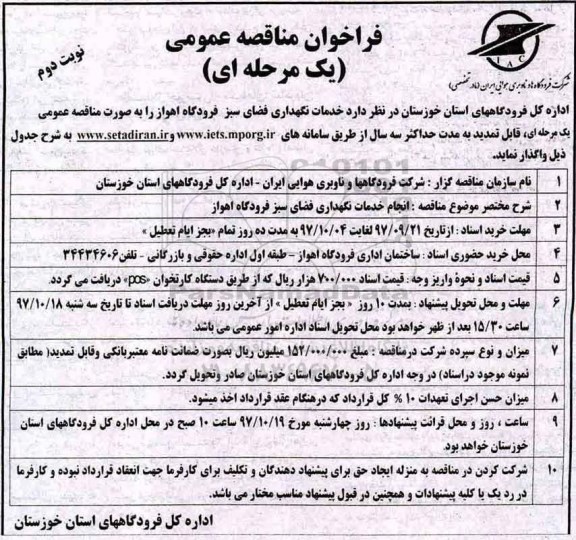 فراخوان مناقصه عمومی
(یک مرحله ای)
نوبت دوم
IAC
شرکت فرودگاه‌ها و ناوبری هوایی ایران (مادر تخصصی)
اداره کل فرودگاههای استان خوزستان در نظر دارد خدمات نگهداری فضای سبز فرودگاه اهواز را به صورت مناقصه عمومی
یک مرحله ای، قابل تمدید به مدت حداکثر سه سال از طریق سامانه های www.iets.mporg.ir و www.setadiran.ir به شرح جدول
ذیل واگذار نماید.
۱ نام سازمان مناقصه گزار : شرکت فرودگاهها و ناوبری هوایی ایران - اداره کل فرودگاههای استان خوزستان
۲ شرح مختصر موضوع مناقصه : انجام خدمات نگهداری فضای سبز فرودگاه اهواز
۳ مهلت خرید اسناد : ازتاریخ ۹۷/۰۹/۲۱ لغایت ۹۷/۱۰/۰۴ به مدت ده روز تمام «بجز ایام تعطیل »
۴ محل خرید حضوری اسناد : ساختمان اداری فرودگاه اهواز – طبقه اول اداره حقوقی و بازرگانی - تلفن ۳۴۴۳۴۶۰۶
۵ قیمت اسناد و نحوۀ واریز وجه : قیمت اسناد ۷۰۰/۰۰۰ هزار ریال که از طریق دستگاه کارتخوان «pos» دریافت می گردد.
۶ مهلت و محل تحویل پیشنهاد : بمدت ۱۰ روز « بجز ایام تعطیل » از آخرین روز مهلت دریافت اسناد تا تاریخ سه شنبه ۹۷/۱۰/۱۸
ساعت ۱۵/۳۰ بعد از ظهر خواهد بود محل تحویل اسناد اداره امور عمومی می باشد.
۷ میزان و نوع سپرده شرکت درمناقصه : مبلغ ۱۵۲/۰۰۰/۰۰۰ میلیون ریال بصورت ضمانت نامه معتبربانکی وقابل تمدید( مطابق
نمونه موجود دراسناد) در وجه اداره کل فرودگاههای استان خوزستان صادر وتحویل گردد.
۸ میزان حسن اجرای تعهدات ۱۰ % کل قرارداد که درهنگام عقد قرارداد اخذ میشود.
۹ ساعت ، روز و محل قرائت پیشنهادها : روز چهارشنبه مورخ ۹۷/۱۰/۱۹ ساعت ۱۰ صبح در محل اداره کل فرودگاههای استان
خوزستان خواهد بود.
۱۰ شرکت کردن در مناقصه به منزله ایجاد حق برای پیشنهاد دهندگان و تکلیف برای کارفرما جهت انعقاد قرارداد نبوده و کارفرما
در رد یک یا کلیه پیشنهادات و همچنین در قبول پیشنهاد مناسب مختار می باشد.
اداره کل فرودگاههای استان خوزستان